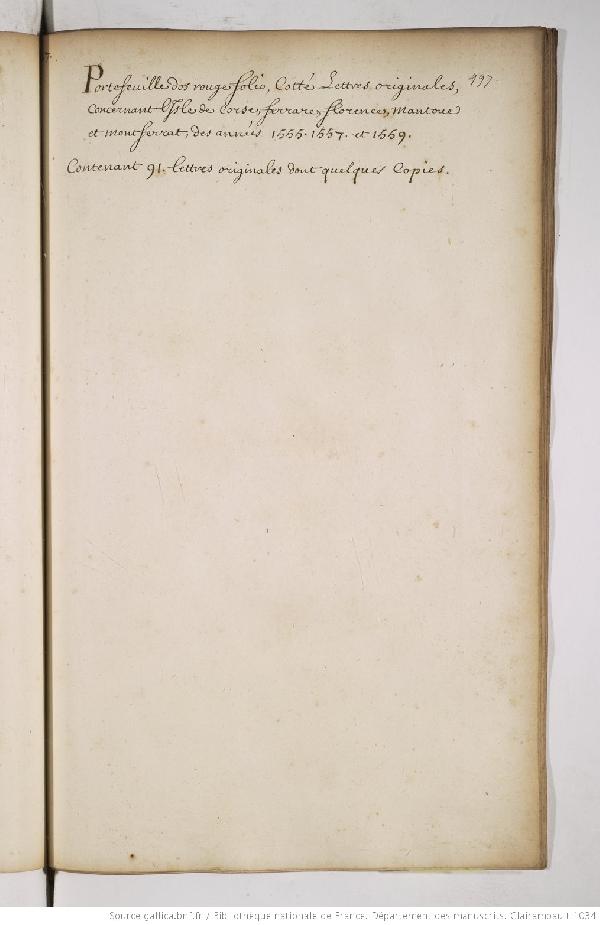 Portefeuille dos rouge folio, Cotté Lettres originales, 497.
Concernant L'Isle de Corse, ferrare, florence, Mantoue
et montferrat, des années 1555. 1557. et 1559.
Contenant 91. lettres originales dont quelques Copies.
Source gallica.bnf.fr / Bibliothèque nationale de France. Département des manuscrits. Clairambault 1034